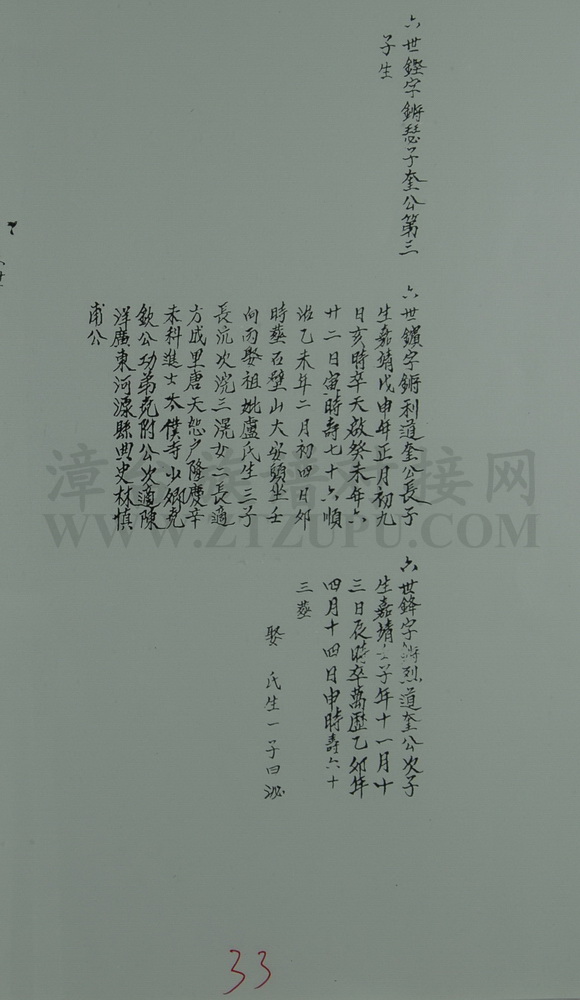 六世鏗字鏘瑟子奎公第三
子生
六世鑌字鏘利道奎公長子
生嘉靖戊申年正月初九
日亥時卒天啟癸未年六
廿二日寅時壽七十六順
治乙未年二月初四日卯
時塟石壁山大安頭坐壬
向丙娶祖妣盧氏生三子
長沆次浣三滉女二長適
方成里唐天恕户隆慶辛
未科進士太僕寺少卿克
欽公功弟克附公次適陳
洋廣東河源縣典史林慎
甫公
六世鋒字鏘烈道奎公次子
生嘉靖子年十一月十
三日辰時卒萬歷乙卯年
四月十四日申時壽六十
三塟
娶 氏生一子曰泌
33
漳州族譜对接网
WWW.ZTZUPU.COM